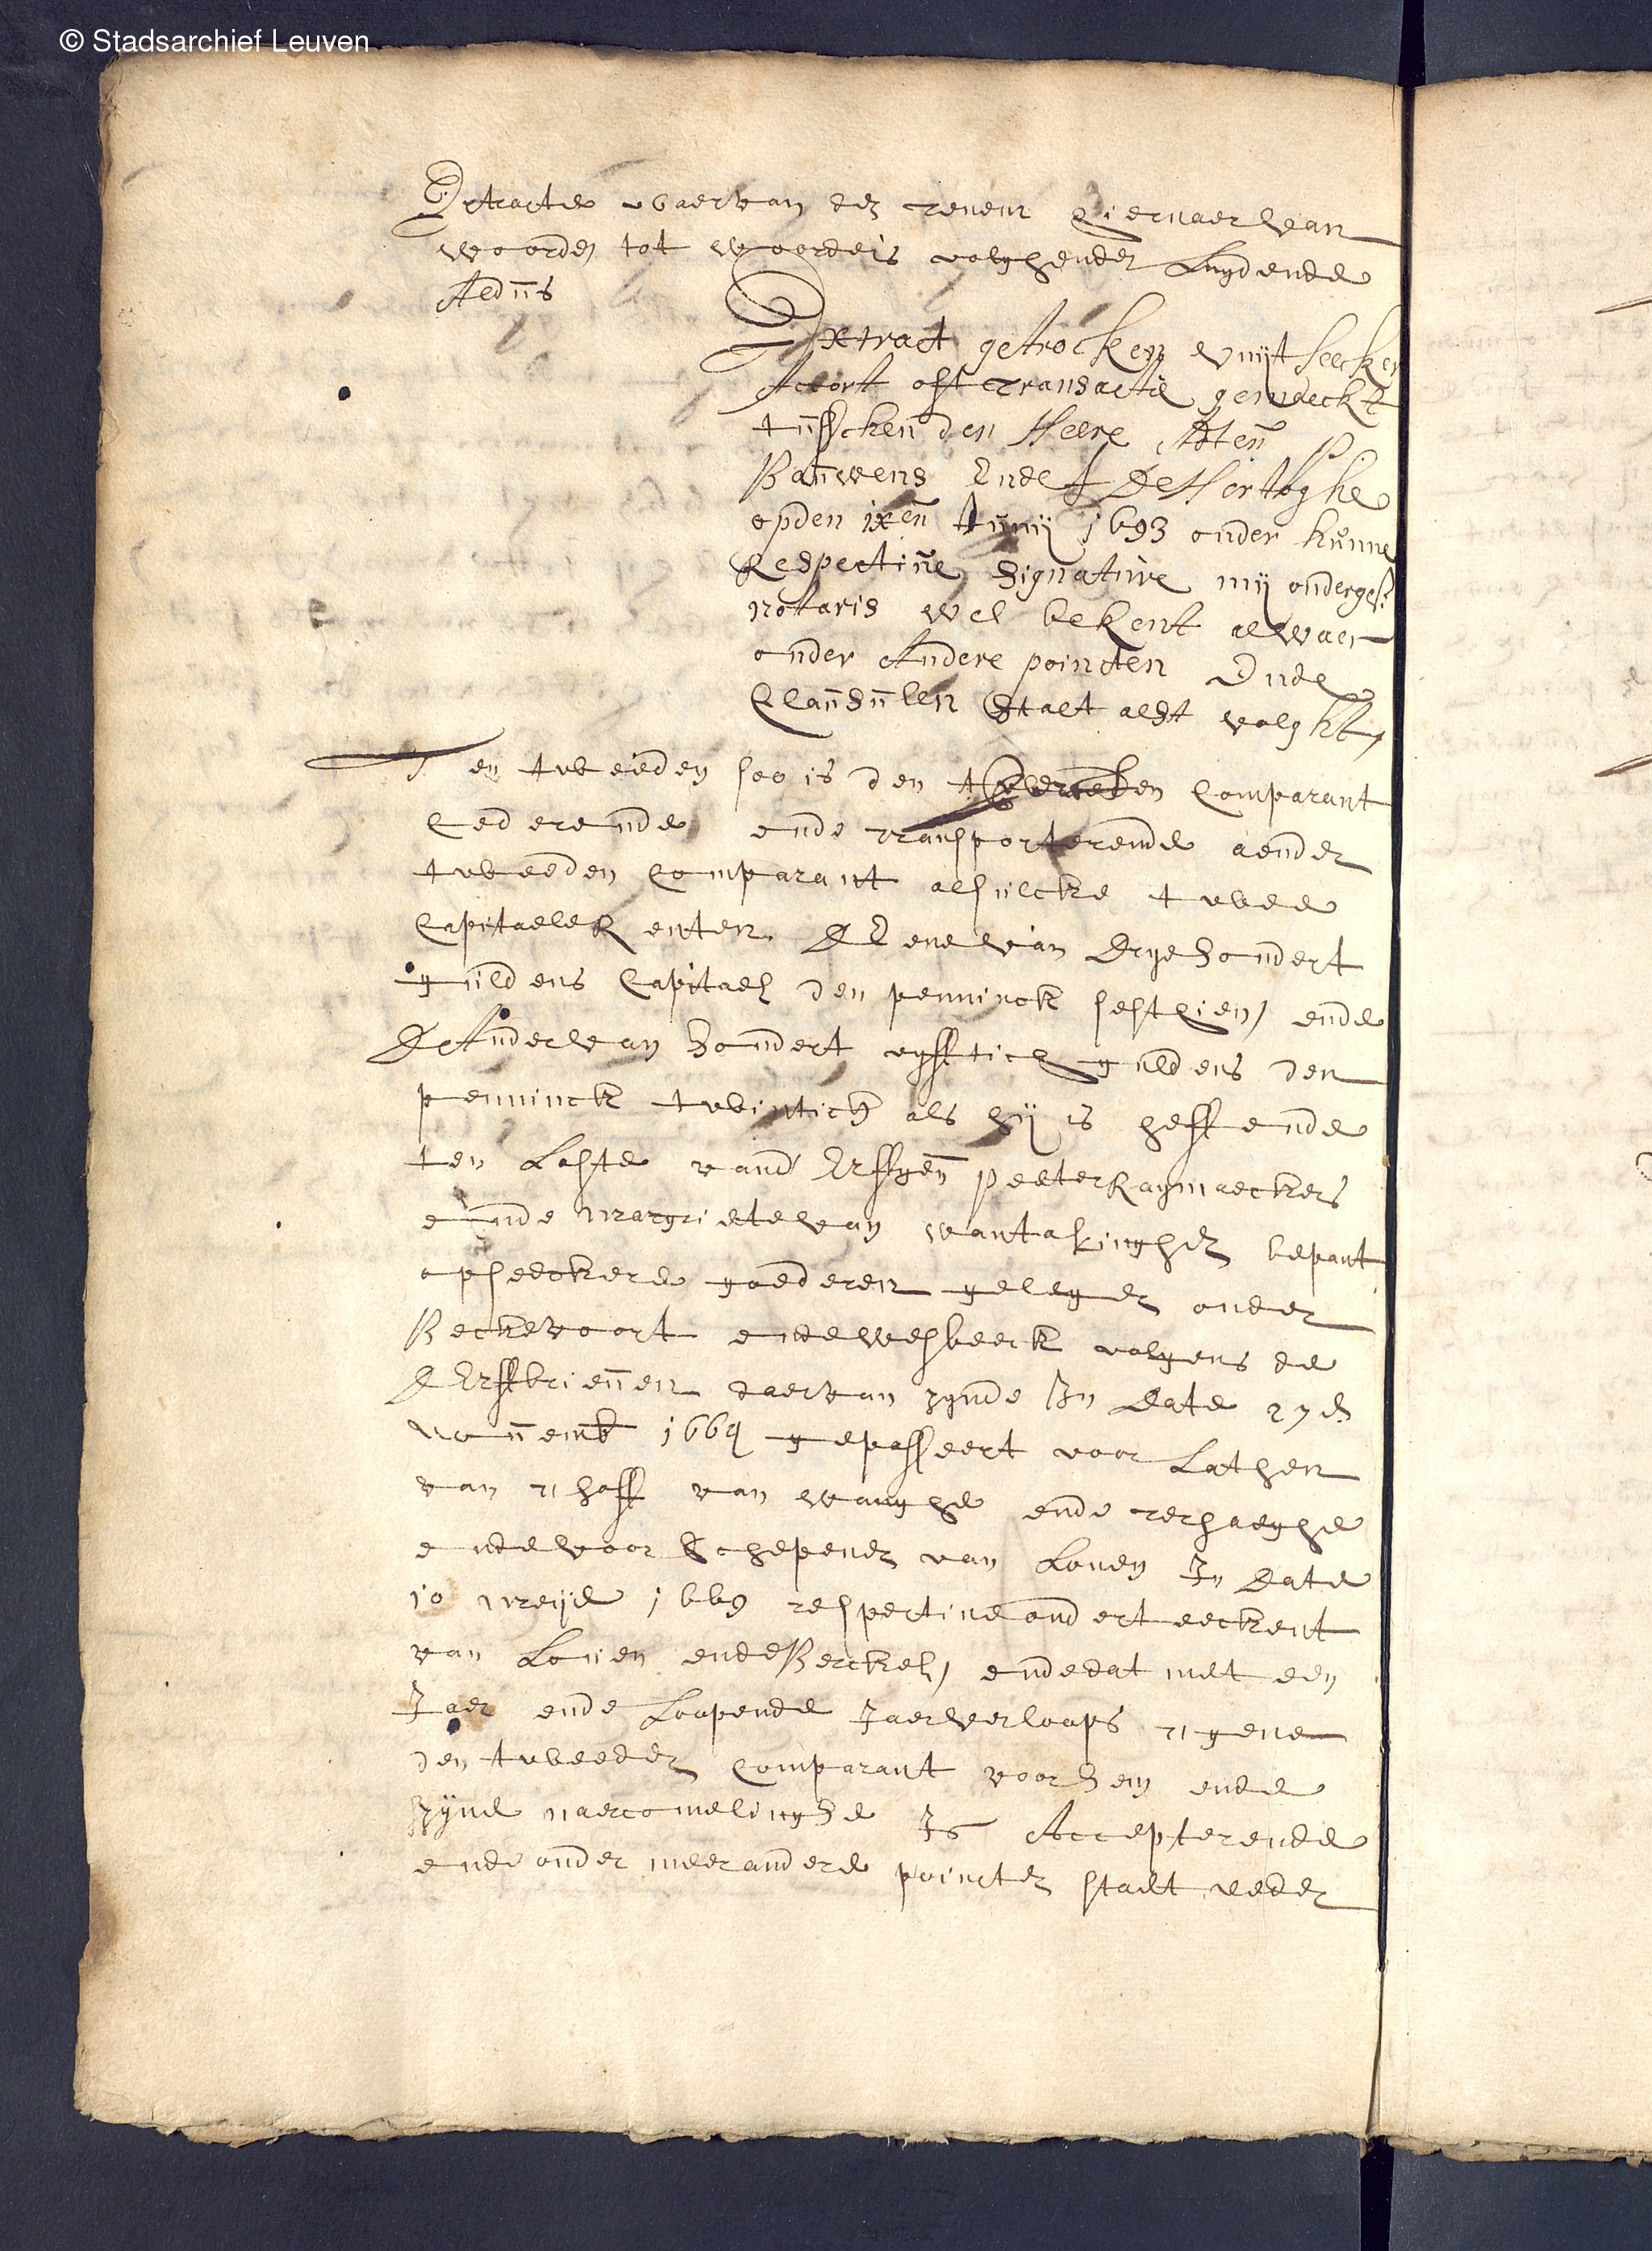 © Stadsarchief Leuven
Extracte waervan den teneur hiernaer van
woorden tot woordeis volghender Luydende
Aldūs
Extract getrocken vuijt seecker
Accort oft transactie gemaeckt
tūsschen den Heere
Baūwens Ende De Hertoghe
opden ixen Junij 1693 onder hūnne
Respectiūe signatūre mij ondergesr
notaris wel bekent alwaer
onder Andere poincten Ende
Claūsūlen Staet alst volght,
Ten tweeden soo is den Comparant
Cederende ende transporterende aenden
tweeden Comparant alsulcke twee
Capitaele Renten DEene van Dryehondert
guldens Capitael den penninck sesthien, ende
DAnder van hondert vyfftich guldens den
penninck twintich als hij is heffende
ten Laste vand Erffgen Peeter Raymaeckers
ende Margriete van bepant
op seeckere goederen gelegen onder
Beckevoort ende wesbeeck volgens de
DErffbrieūen daervan zynde In Date 27 d
noūemb 1664 gepasseert voor Lathen
van thoff van wanghe ende terhaeghe
ende voor Schepenen van Loven In Date
10 Meije 1669 respective onderteeckent
van Loūen ende Berckel, ende dat met een
Jaer ende Loopende Jaer verloops tgene
den tweeden Comparant voor hem ende
zijne naercomelinghe Is Accepterende
ende onder meer andere poincten staet